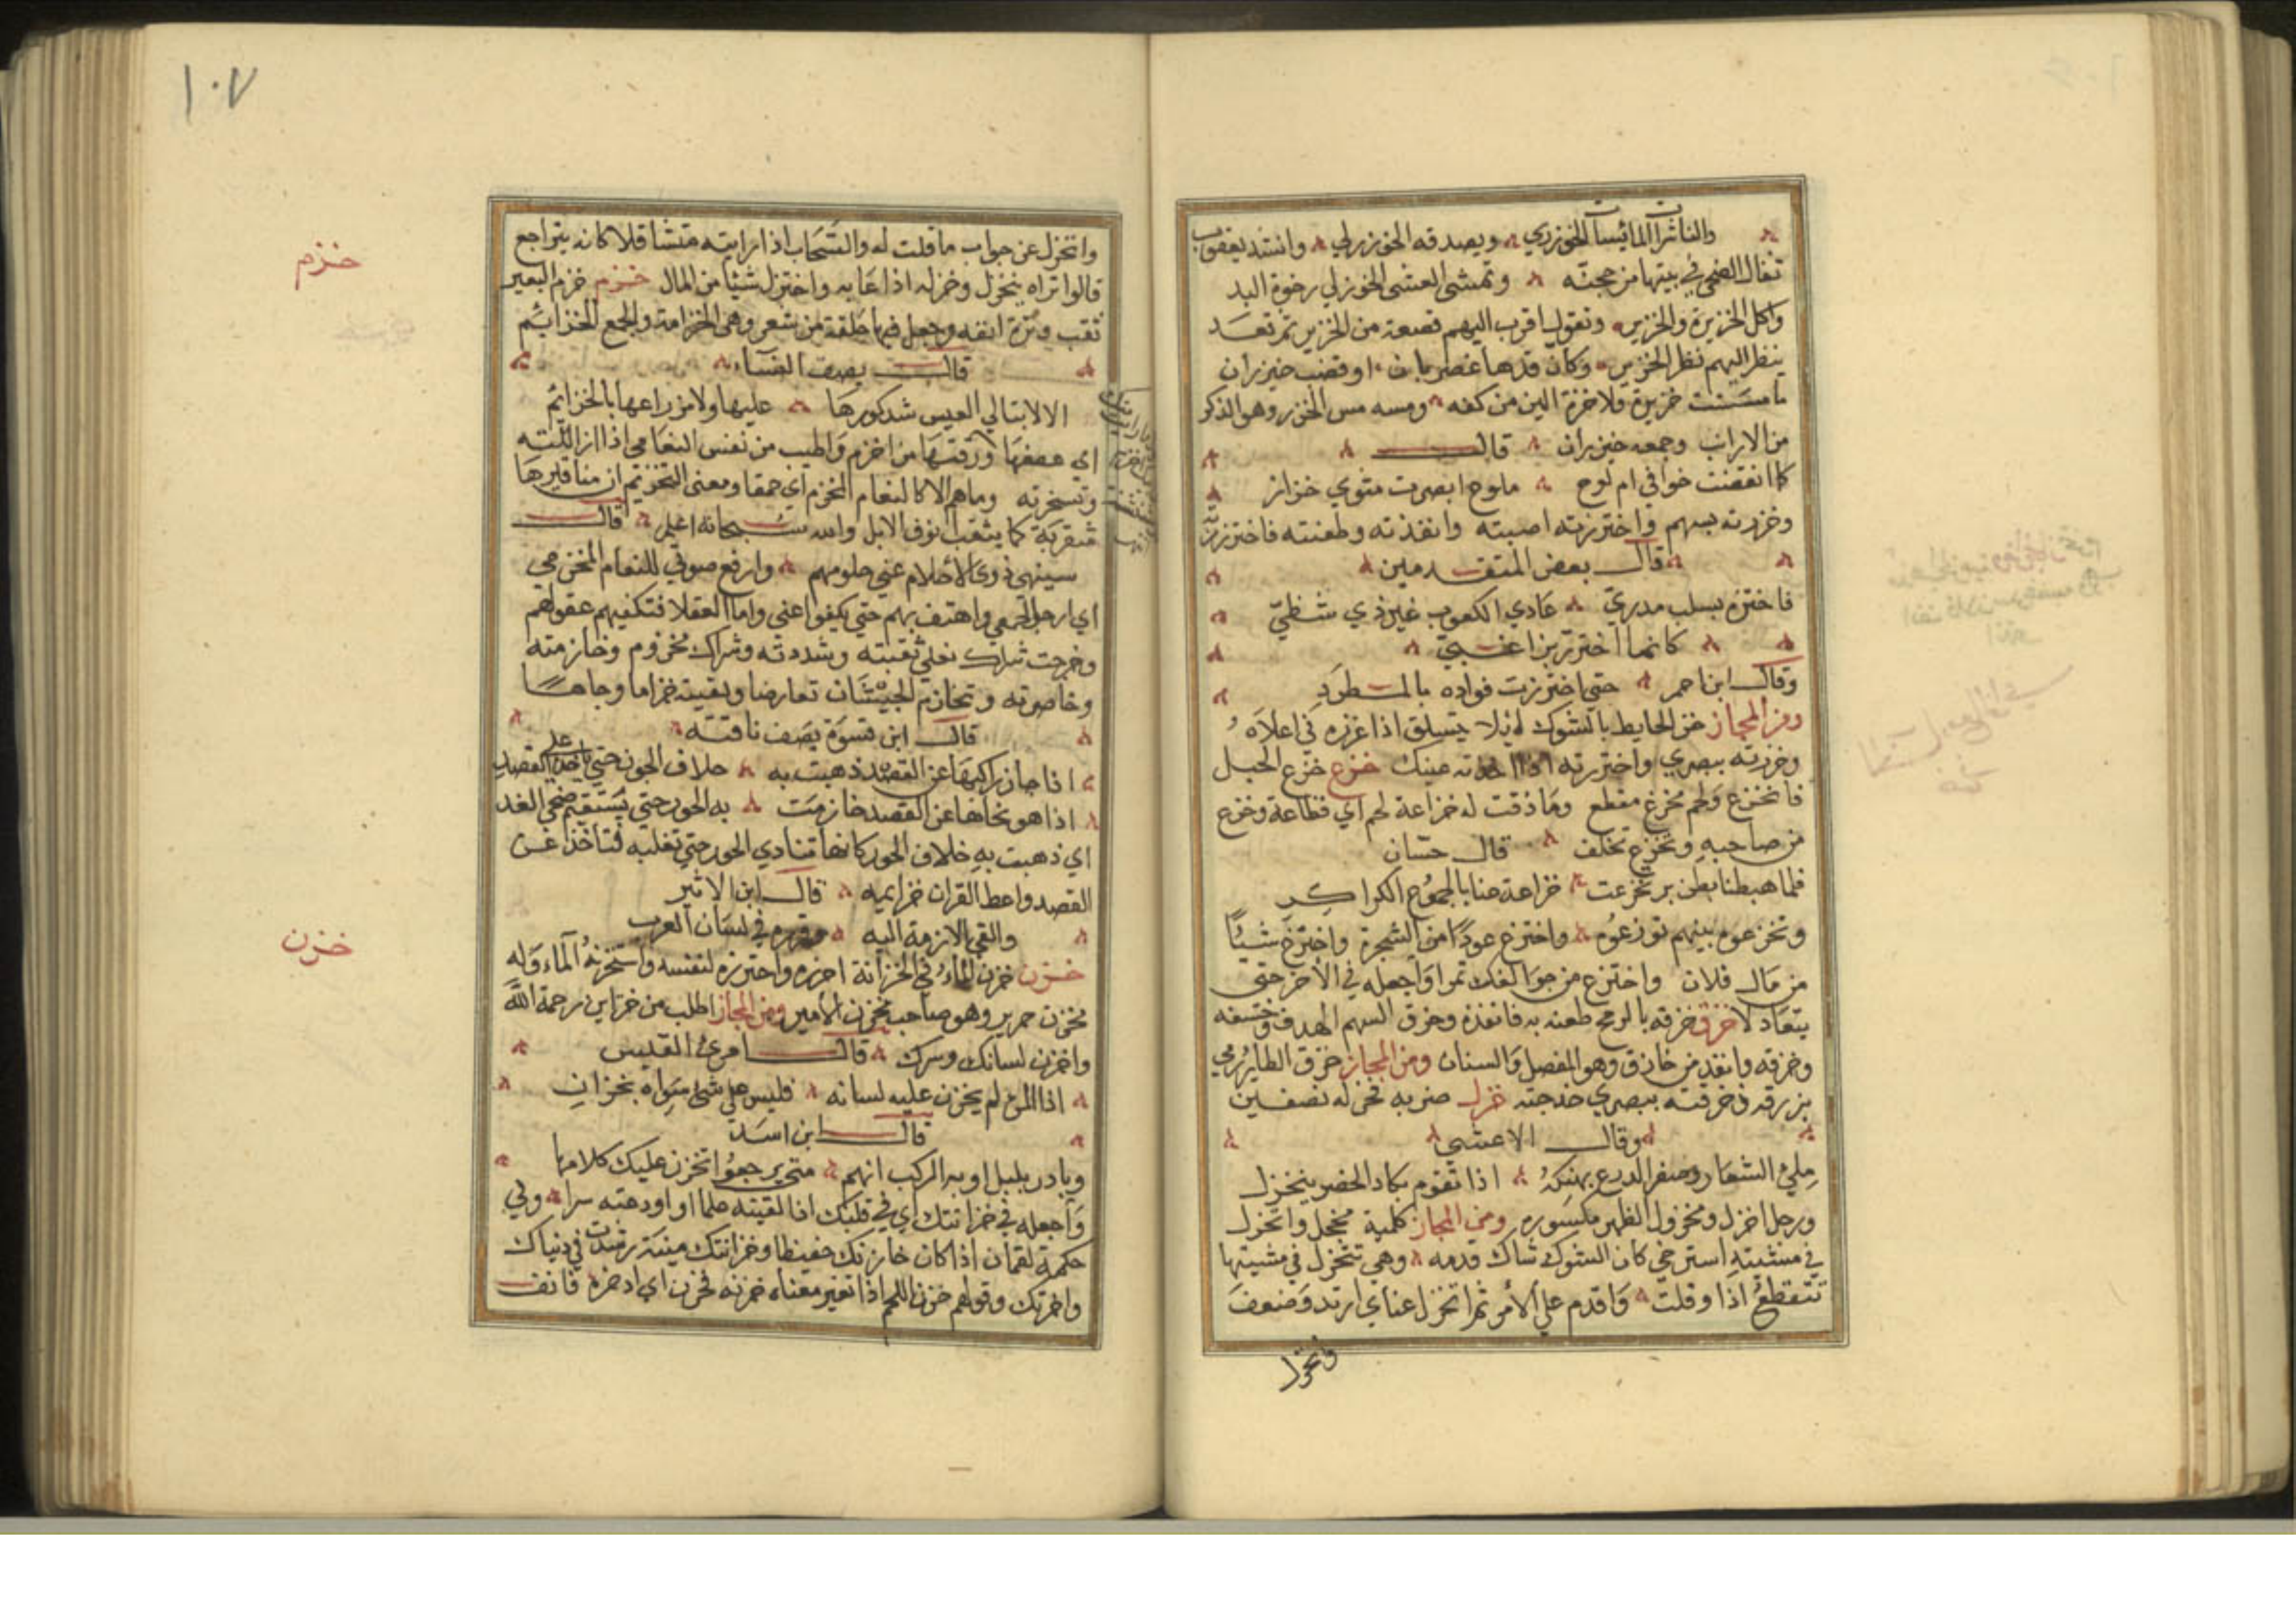 والناشرات المائسات الخوزري ويصدقه الخوزرلي وانشد يعقوب
تنفال الضحى في بيتها من حجته وتمشي العشي الخوزلي رخوة اليد
واكل الخزيرة والخزير وتقول اقرب اليهم قصعة من الخزير ثم تعد
ينظر اليهم نظر الخزير وكان قدها غصن بان او قضب خيزران
ما مسست خزيرة ولا خزة الين من كفه ومسه مس الخزر وهو الذكر
من الارانب وجمعه خزان قال
كما انقضت خوافي ام لوح ملوح ابصرت مثوي خزاز
وخززته بسهم واختززته اصبته وانفذته وطعنته فاختززته
قال بعض المتقدمين
فاختزه بسلب مدري عادي الكعوب غير ذي شظي
كانما اختز بزاغبي
وقال ابن احمر حتى اختززت فواده بالمطرد
ومن المجاز خز الحايط بالشوك لئلا يتسلق اذا غرزه في اعلاه
وخززته ببصري واختززته اذا اخذته عينك خزع خزع الحبل
فانخزع ولحم مخزع مقطع وما ذقت له خزاعة لحم اي قطاعة وخزع
من صاحبه وتخزع تخلف قال حسان
فلما هبطنا بطن مر تخزعت خزاعة عنا بالجموع الكراكر
وتخزعوه بينهم توزعوه واختزع عودا من الشجرة واختزع شيئا
من مال فلان واختزع من جوالقك تمرا واجعله في الاخر حتى
يتعادلا خزق خزقه بالرمح طعنه به فانفذه وخزق السهم الهدف وخسفه
وخزقه وانفذ من خازق وهو المفصل والسنان ومن المجاز خزق الطاير رمي
بزرقه وخزقته ببصري حدجته خزل ضربه فخزله نصفين
وقال الاعشى
ملئ الشعار وصفر الدرع بهنكة اذا تقوم يكاد الخصر ينخزل
ورجل اخزل ومخزول الظهر مكسوره ومن المجاز كلمة مخجل وانخزل
في مشيته استرخى كان الشوك شاك قدمه وهي تنخزل في مشيتها
تتقطع اذا وقلت واقدم على الامر ثم انخزل عنه اي ارتد وضعف
وانخزل
١٠٧
وانخزل عن جواب ما قلت له والسحاب اذا رايته متثاقلا كانه يتراجع
قالوا تراه ينخزل وخزله اذا عابه واختزل شيئا من المال خزم خزم البعير
ثقب وترة انفه وجعل فيها حلقة من شعر وهي الخزامة والجمع الخزايم
قال يصف النساء
الا لابتالي العيس شدكورها عليها ولا من راعها بالخزايم
اي ضعفها ورقتها من اخزم واطيب من نفس النعامى اذا ازللته
وتسخرته وما هم الا كالنعام المخزم اي حمقا ومعنى التخزيم ان مناقيرها
مثقبة كما يثقب انوف الابل والله سبحانه اعلم قال
سينهى ذوي الاحلام عني حلومهم وارفع صوتي للنعام المخزم
اي ارجل الحمقى واهتف بهم حتى يكفوا عني واما العقلا فتكفيهم عقولهم
وخزمت شراك نعلي ثقبته وشددته وشراك مخزوم وخازمته
وخاصرته وتخازم الجيشان تعارضا ولقيته خزاما وجاها
قال ابن فسوة يصف ناقته
اذا جاز راكبها عن القصد ذهبت به خلاف الجون حتى ياخذ على القصد
اذا هو نحاها عن القصد خازمت به الجور حتى يستقيم ضحى الغد
اي ذهبت به خلاف الجور كانها تنادي الجور حتى تغلبه فتاخذ عن
القصد واعطا القران خزايمه قال ابن الاثير
والتقى الازمة اليه في لسان العرب
خزن خزن الماء في الخزانة احرزه واحترزه لنفسه واستخزنه الماء وله
مخزن حرير وهو صاحب مخزن الامير ومن المجاز اطلب من خزاين رحمة الله
واخزن لسانك وسرك قال امرئ القيس
اذا المرء لم يخزن عليه لسانه فليس على شئ سواه بخزان
قال ابن اسد
وبادر بليل اوبة الركب انهم متى يرجعوا تخزن عليك كلامها
واجعله في خزانتك اي في قلبك اذا لقيته علما او اودعته سرا وفي
حكمة لقمان اذا كان خازنك حفيظا وخزانتك مينة رشدت في دنياك
واخرتك وقولهم خزن اللحم اذا تغير معناه خزنه فخزن اي ادخره فانف
خزم
خزن